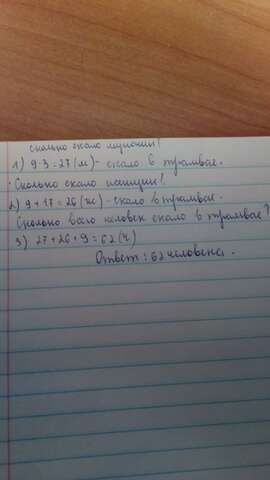 сколько ехало мужчин?
1) 9·3=27(м)- ехало в трамвае.
Сколько ехало женщин?
2) 9+17=26(ж)-ехало в трамвае.
Сколько всего человек ехало в трамвае?
3) 27+26+9=62(ч)
Ответ: 62 человека.